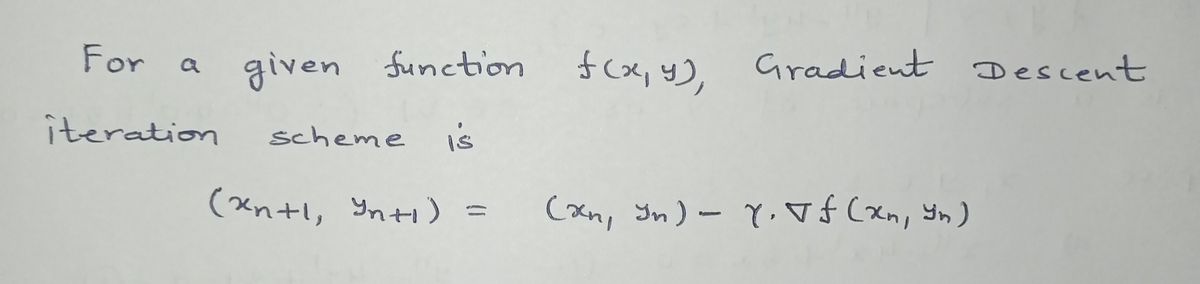 For a given function f(x, y), Gradient Descent
iteration scheme is
(xₙ₊₁, yₙ₊₁) = (xₙ, yₙ) – γ. ∇f (xₙ, yₙ)